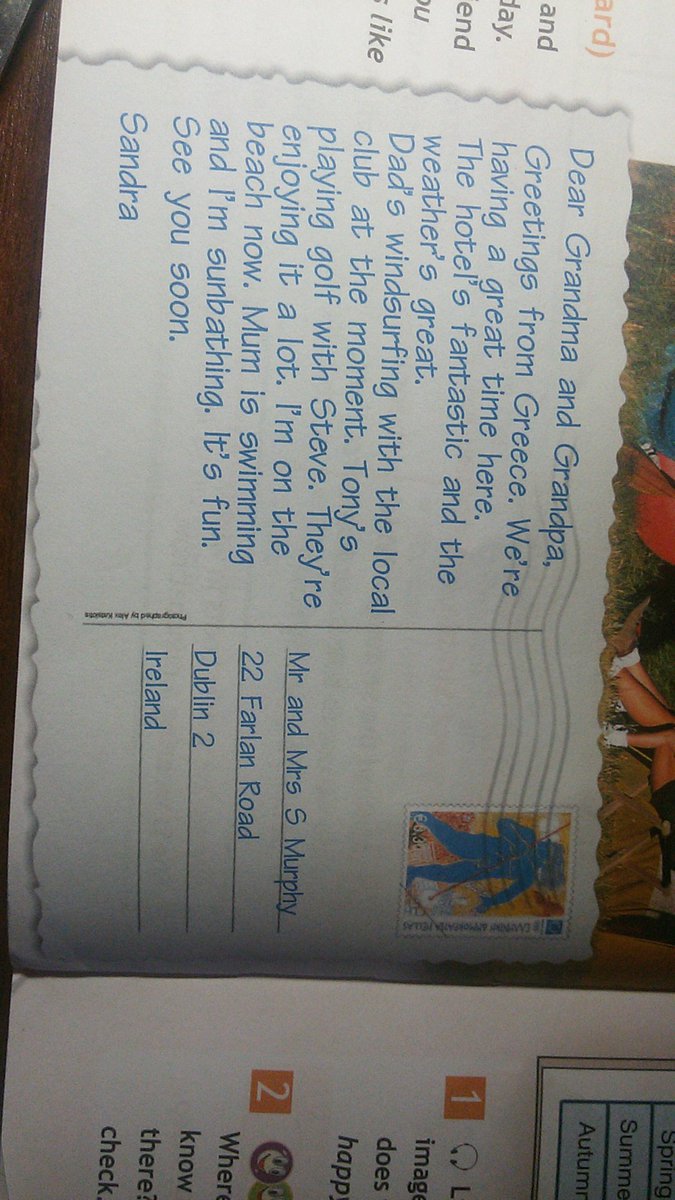 ard)
and
day.
end
ou
s like
Dear Grandma and Grandpa,
Greetings from Greece. We're
having a great time here.
The hotel's fantastic and the
weather's great.
Dad's windsurfing with the local
club at the moment. Tony's
playing golf with Steve. They're
enjoying it a lot. I'm on the
beach now. Mum is swimming
and I'm sunbathing. It's fun.
See you soon.
Sandra
Photographed by Alex Katsiotis
Mr and Mrs S Murphy
22 Farlan Road
Dublin 2
Ireland
ΕΛΛΗΝΙΚΗ ΔΗΜΟΚΡΑΤΙΑ HELLAS
Spring
Summe
Autumn
1 L
image
does
happy
2
Where
know
there?
check.